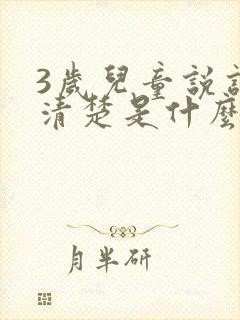 3歲兒童說
清楚是什麼
月半研